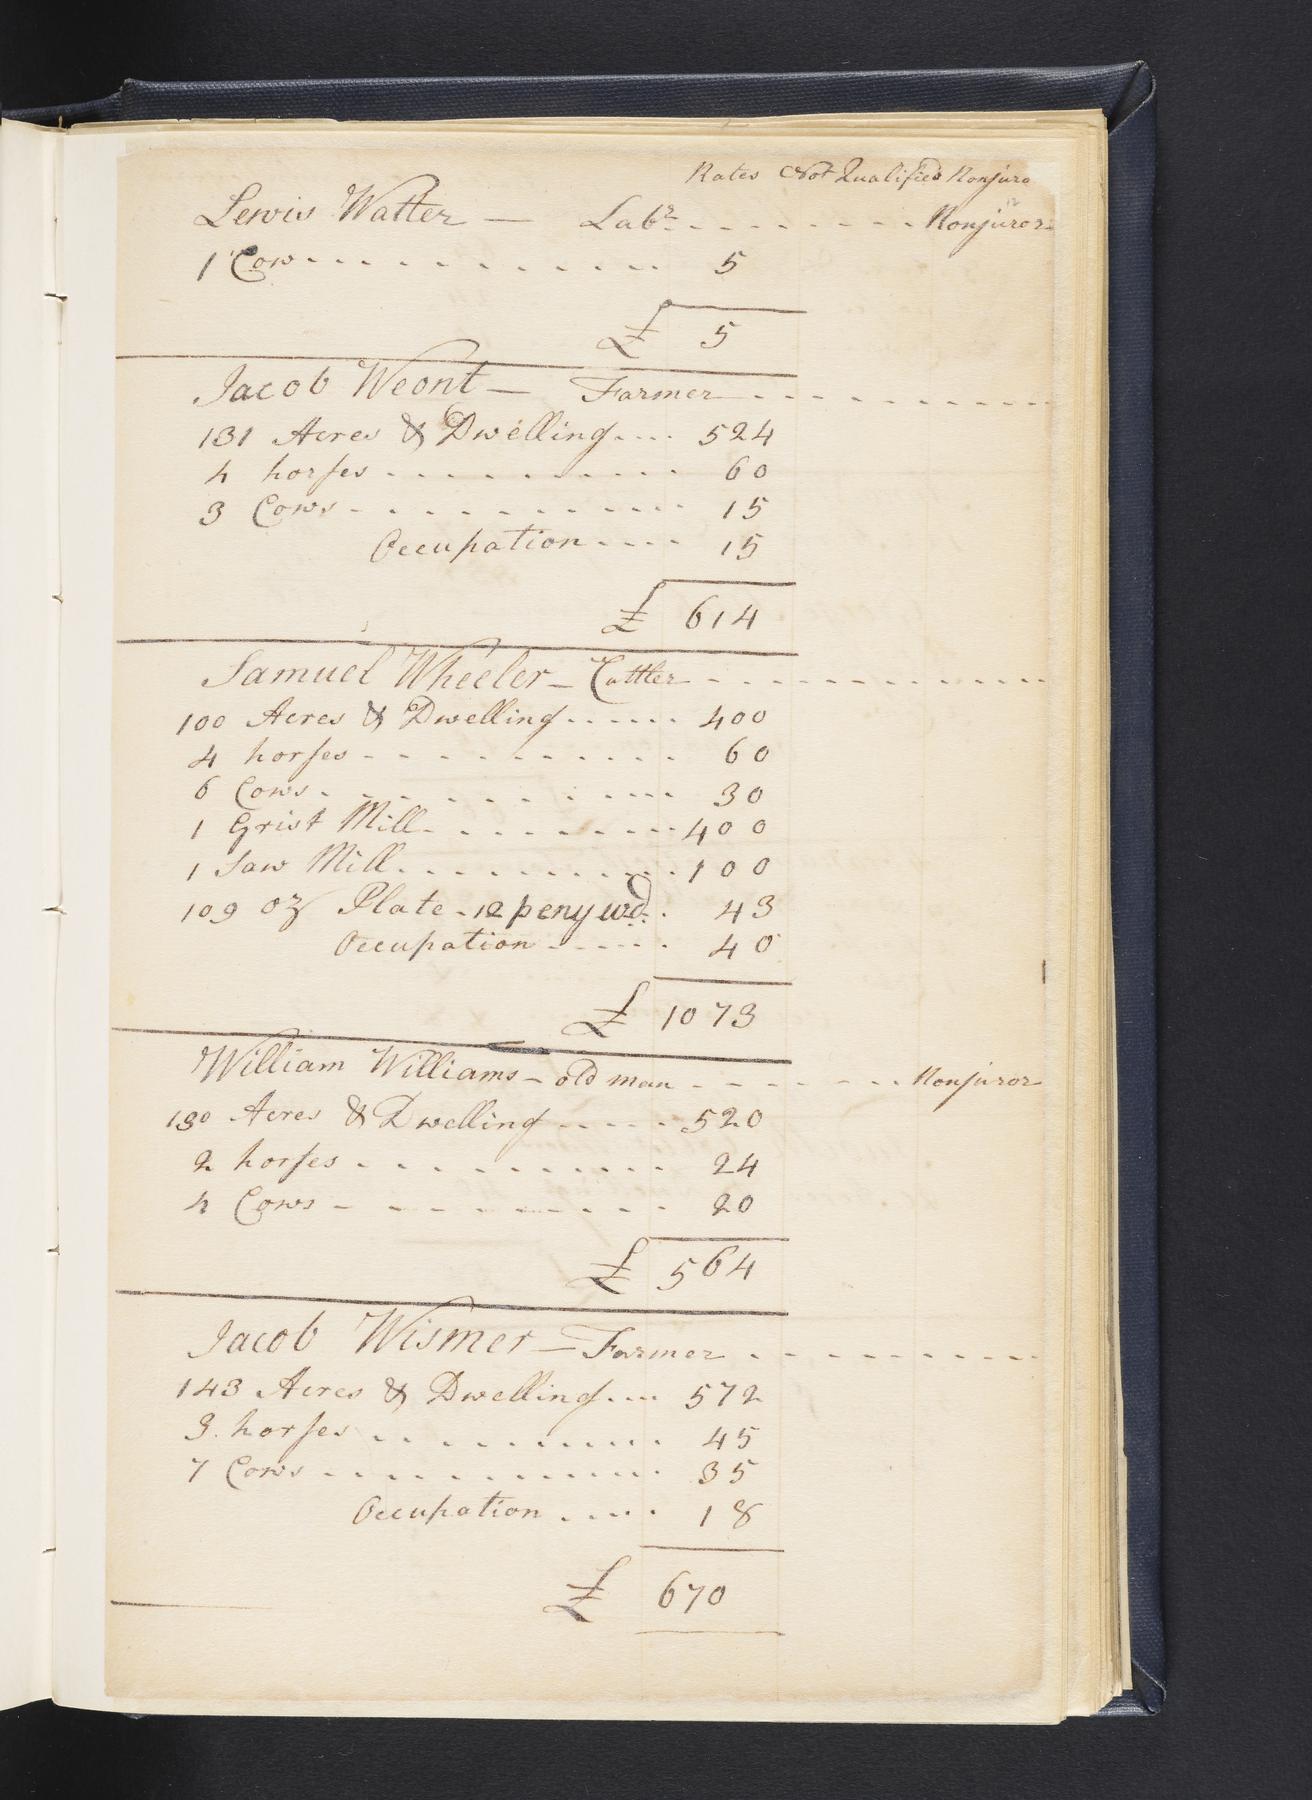 Rates Not Qualified Nonjuro
Lewis Watter — Labr. Nonjuror
1 Cow 5
£ 5
Jacob Weont — Farmer
131 Acres & Dwelling 524
4 horses 60
3 Cows 15
Occupation 15
£ 614
Samuel Wheeler — Cuttler
100 Acres & Dwelling 400
4 horses 60
6 Cows 30
1 Grist Mill 400
1 Saw Mill 100
109 oz Plate - 12 penywd. 43
Occupation 40
£ 1073
William Williams — old man Nonjuror
130 Acres & Dwelling 520
2 horses 24
4 Cows 20
£ 564
Jacob Wismer — Farmer
143 Acres & Dwelling 572
3 horses 45
7 Cows 35
Occupation 18
£ 670